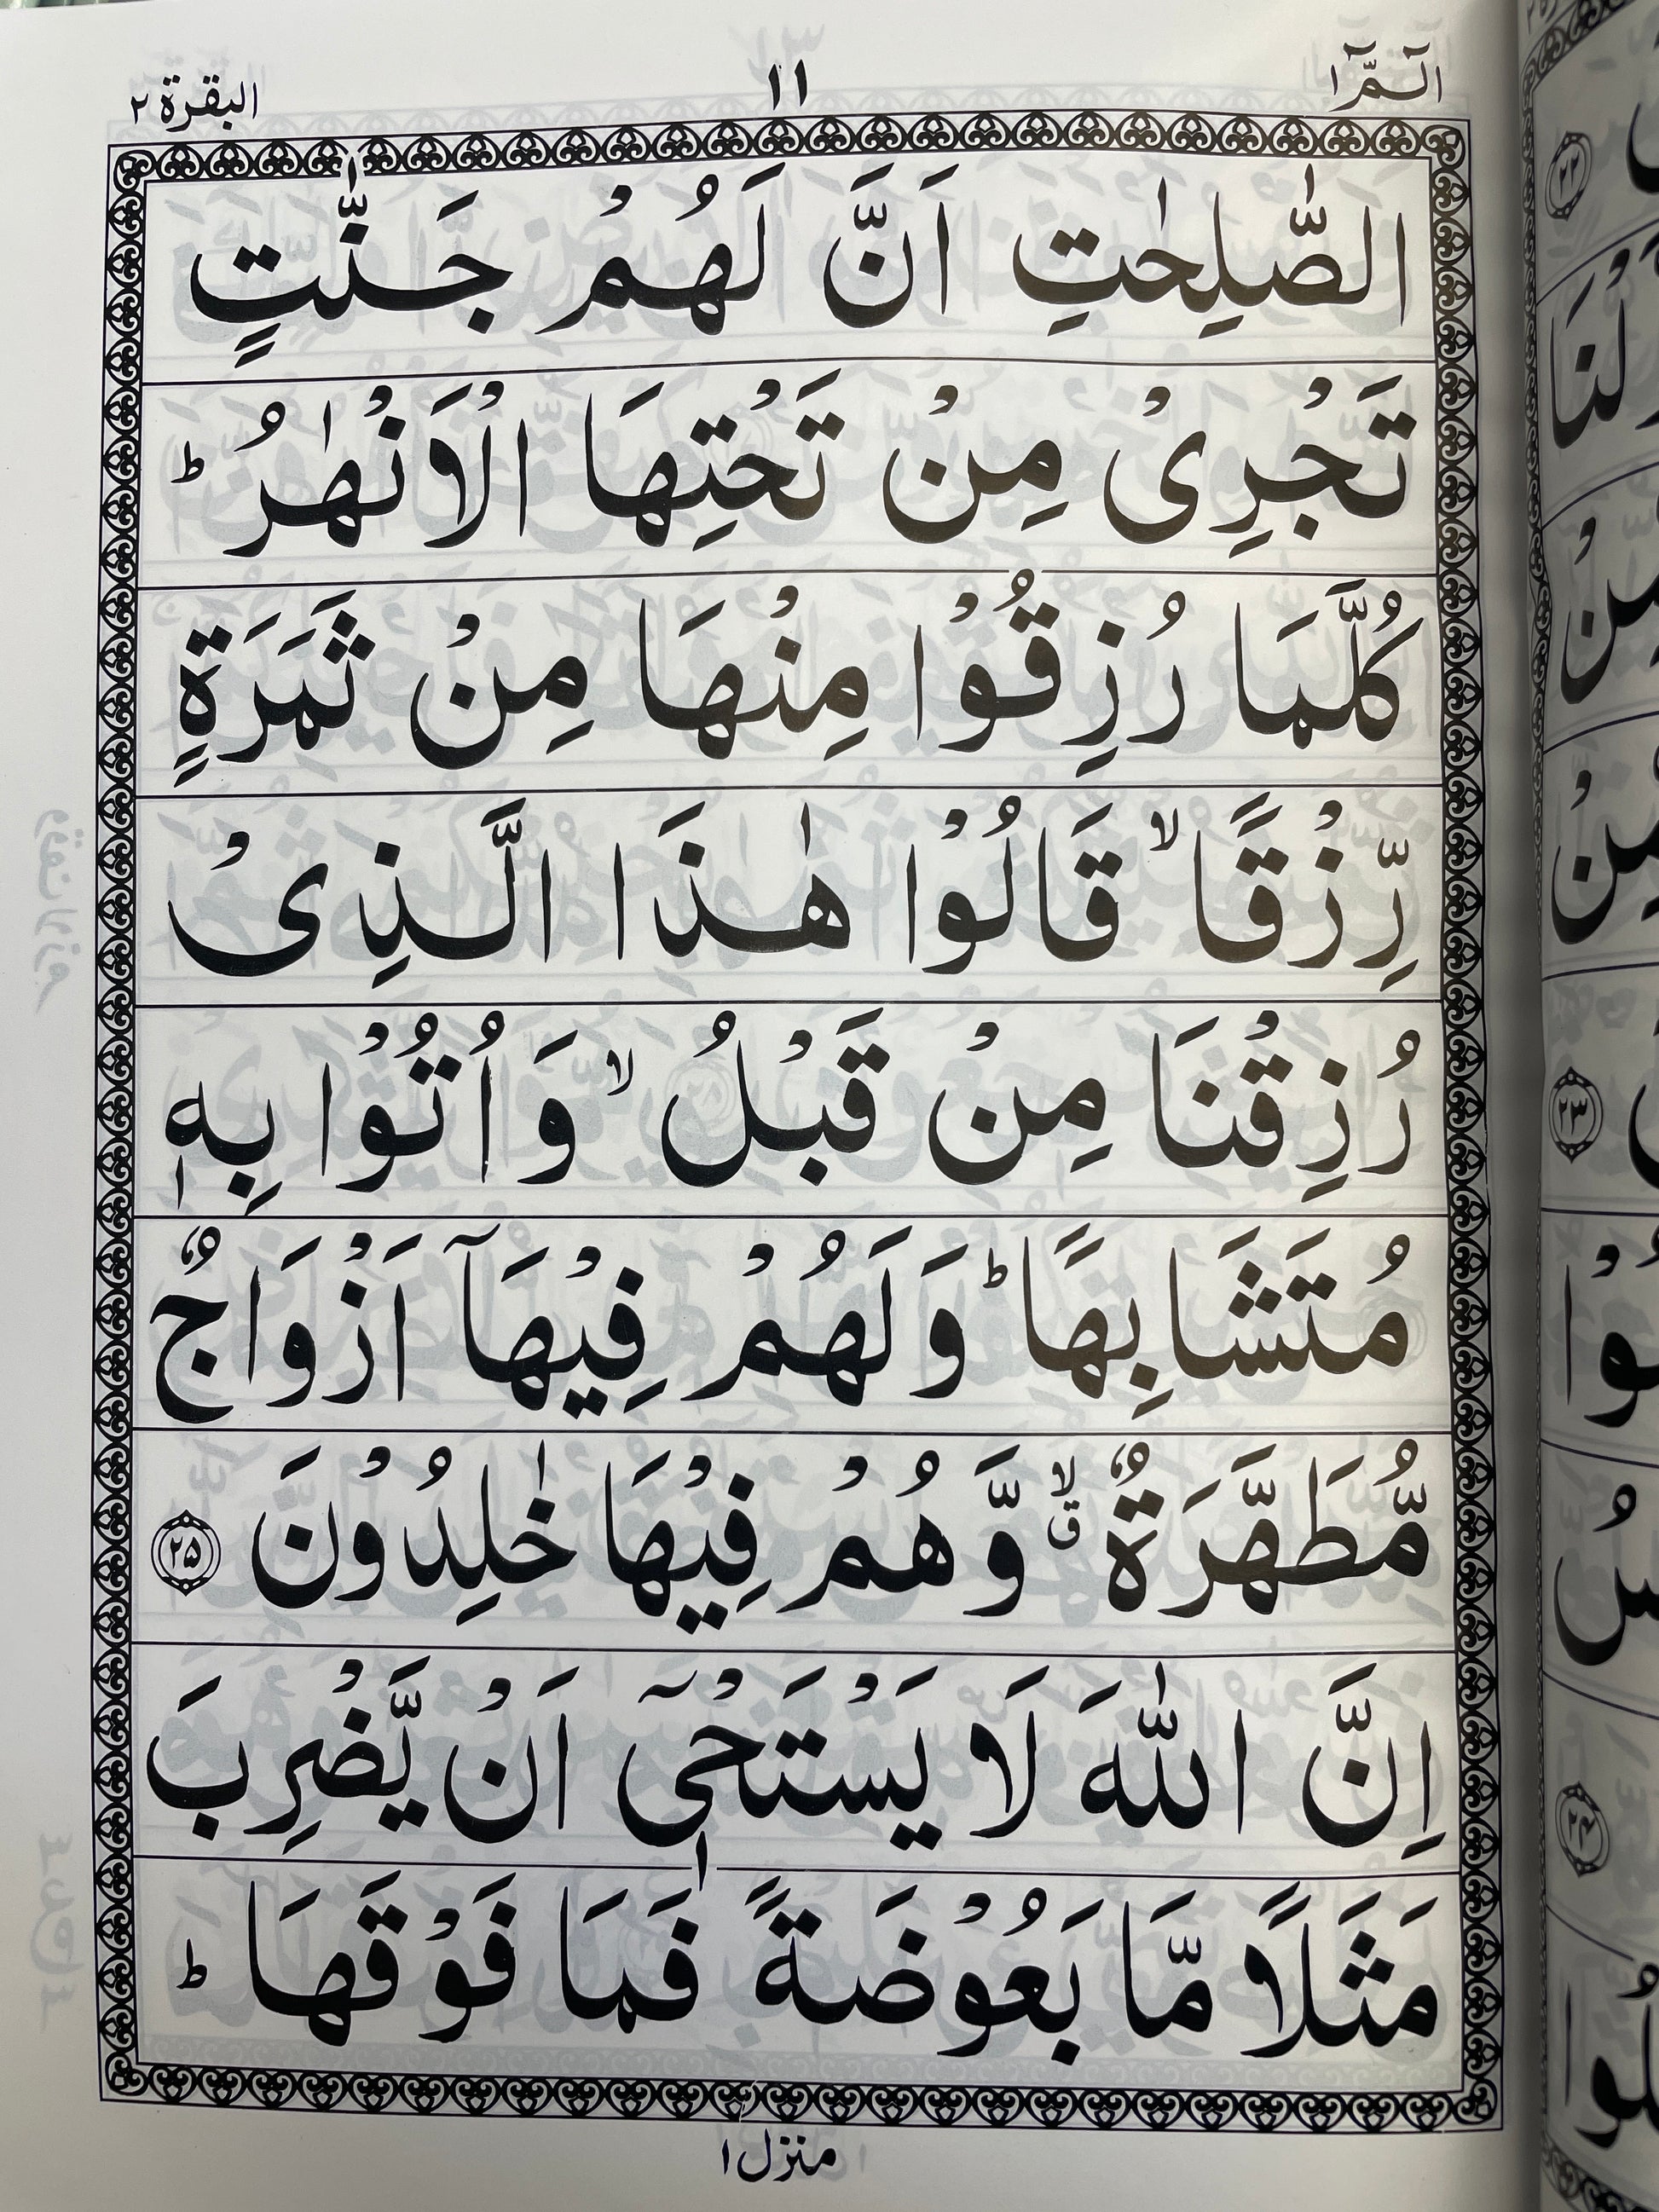 الٓـمّٓ ١
١١
البقرة ٢
الصّٰلِحٰتِ اَنَّ لَهُمْ جَنّٰتٍ
تَجْرِىْ مِنْ تَحْتِهَا الْاَنْهٰرُ ؕ
كُلَّمَا رُزِقُوْا مِنْهَا مِنْ ثَمَرَةٍ
رِّزْقًا ۙ قَالُوْا هٰذَا الَّذِىْ
رُزِقْنَا مِنْ قَبْلُ ۙ وَاُتُوْا بِهٖ
مُتَشَابِهًا ؕ وَلَهُمْ فِيْهَآ اَزْوَاجٌ
مُّطَهَّرَةٌ ۙق وَّهُمْ فِيْهَا خٰلِدُوْنَ ۝۲۵
اِنَّ اللّٰهَ لَا يَسْتَحْىٖٓ اَنْ يَّضْرِبَ
مَثَلًا مَّا بَعُوْضَةً فَمَا فَوْقَهَا ؕ
منزل ١